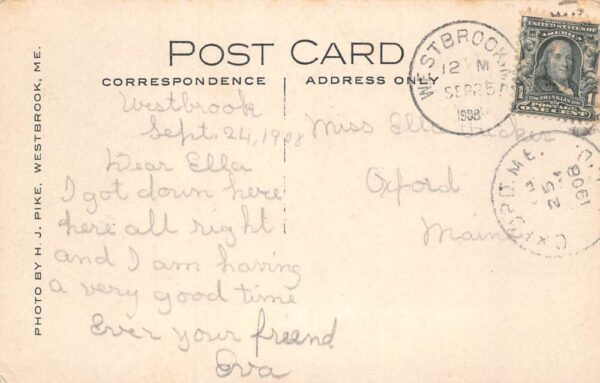 POST CARD
CORRESPONDENCE
ADDRESS ONLY
PHOTO BY H. J. PIKE, WESTBROOK, ME.
Westbrook
Sept. 24, 1908
Dear Ella
I got down here
here all right
and I am having
a very good time
Ever your freend
Eva
Miss Ella Tucker
Oxford
Maine
WESTBROOK, M
12 M
SEP 25
1908
OXFORD, ME.
25
1908
UNITED STATES OF
AMERICA
FRANKLIN
1